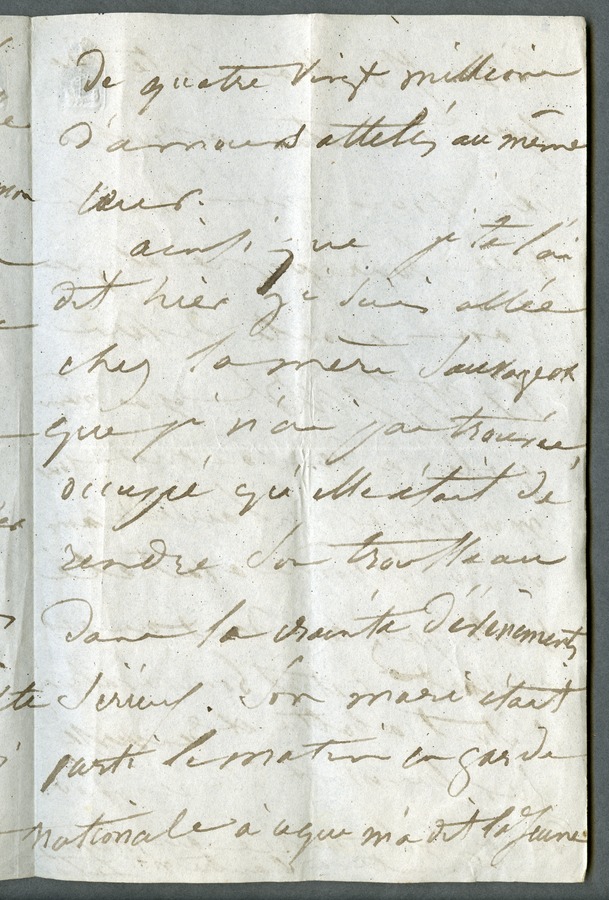 de quatre vingt millions
d'amours attelés au même
cœur.
ainsi que je te l'ai
dit hier je suis allée
chez la mère Sauvageot
que je n'ai pas trouvée
occupé qu'elle était de
rendre son trousseau
dans la crainte d'évènements
sérieux. Son mari était
parti le matin en garde
nationale à ce que m'a dit la jeune